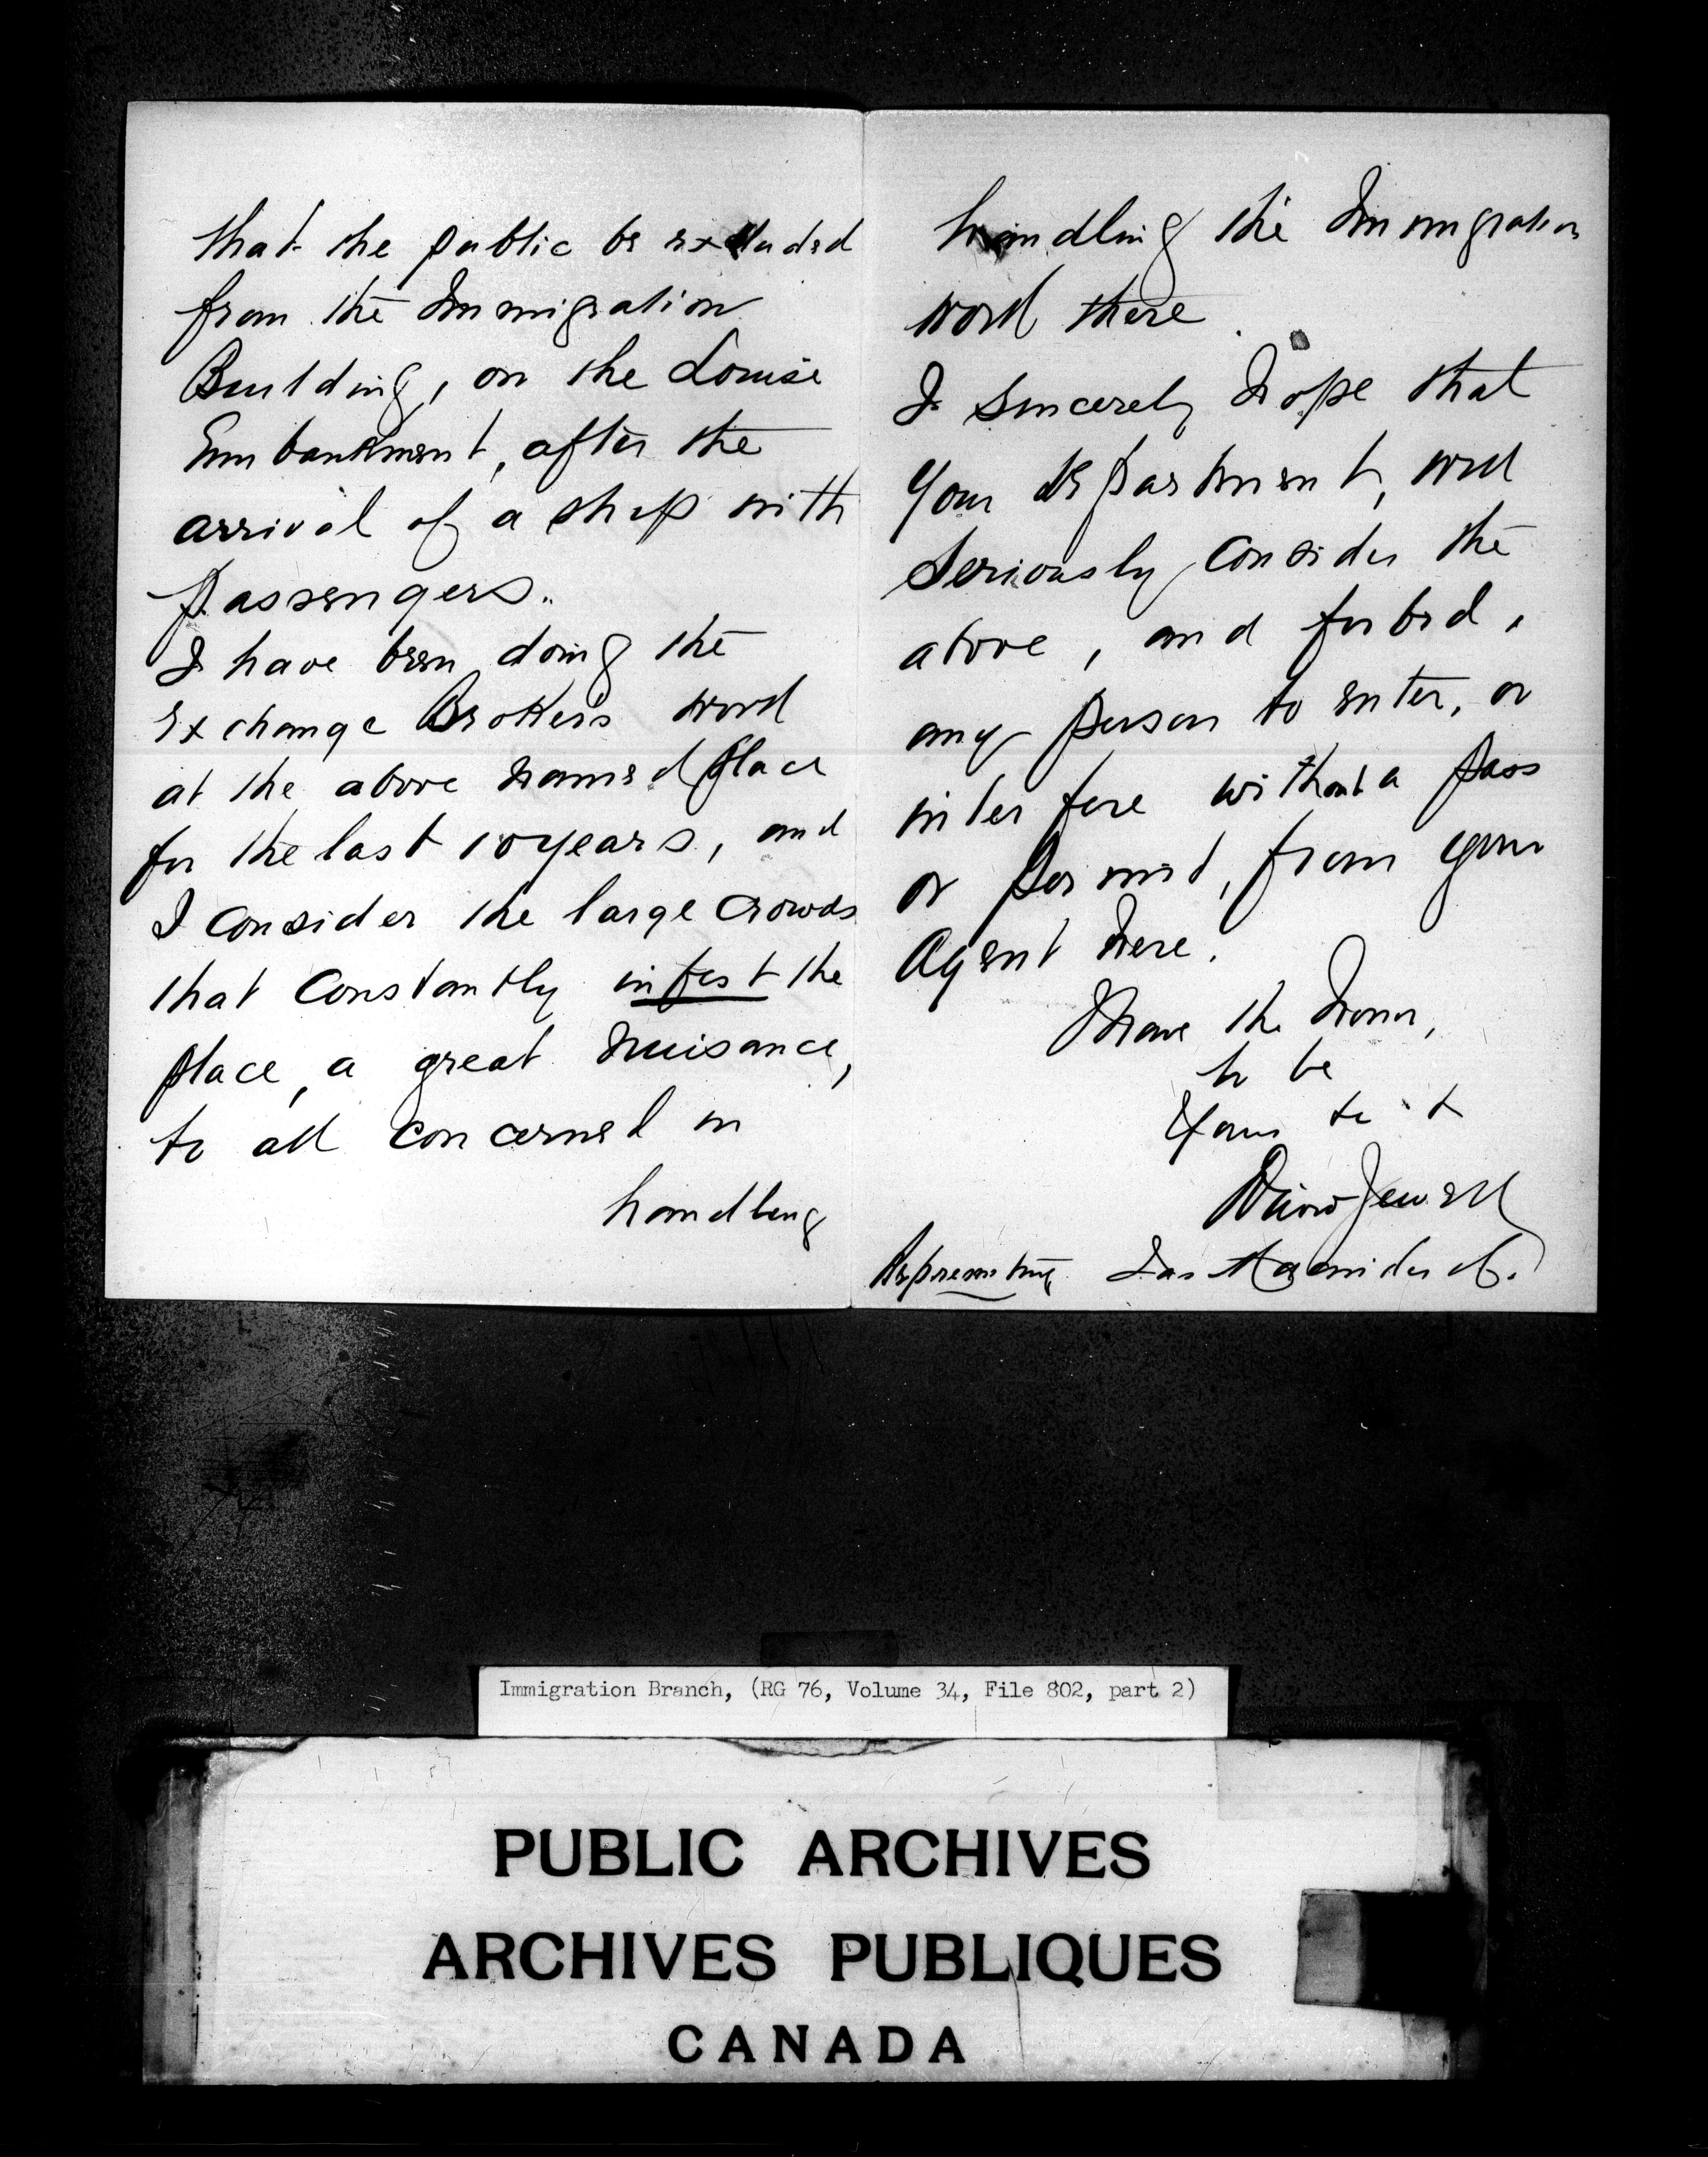 that the public be excluded
from the Immigration
Building, on the Louise
Embankment, after the
arrival of a ship with
passengers.
I have been doing the
Exchange Brokers work
at the above named place
for the last 10 years, and
I consider the large crowds
that constantly infest the
place, a great nuisance,
to all concerned in
handling
handling the Immigration
work there.
I sincerely hope that
your department, will
seriously consider the
above, and forbid,
any person to enter, or
interfere without a pass
or permit, from your
Agent here.
I have the honor,
to be
Yours
David Jewell
Representing Jas
Immigration Branch, (RG 76, Volume 34, File 802, part 2)
PUBLIC ARCHIVES
ARCHIVES PUBLIQUES
CANADA